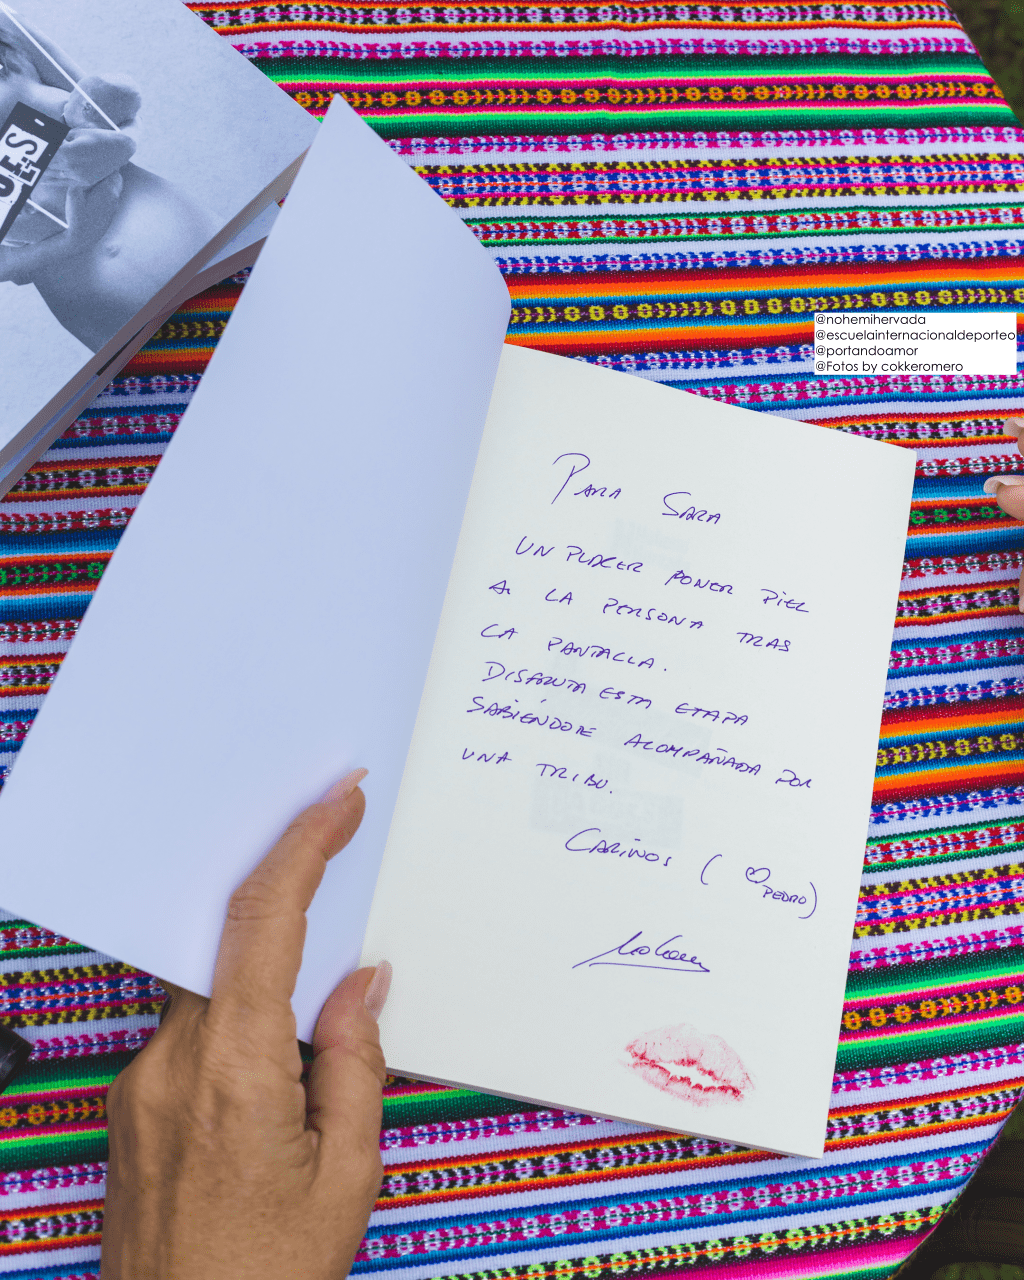 UES
@nohemihervada
@escuelainternacionaldeporteo
@portandoamor
@Fotos by cokkeromero
PARA SARA
UN PLACER PONER PIEL
A LA PERSONA TRAS
LA PANTALLA.
DISFRUTA ESTA ETAPA
SABIÉNDOTE ACOMPAÑADA POR
UNA TRIBU.
CARIÑOS ( ♡
PEDRO)